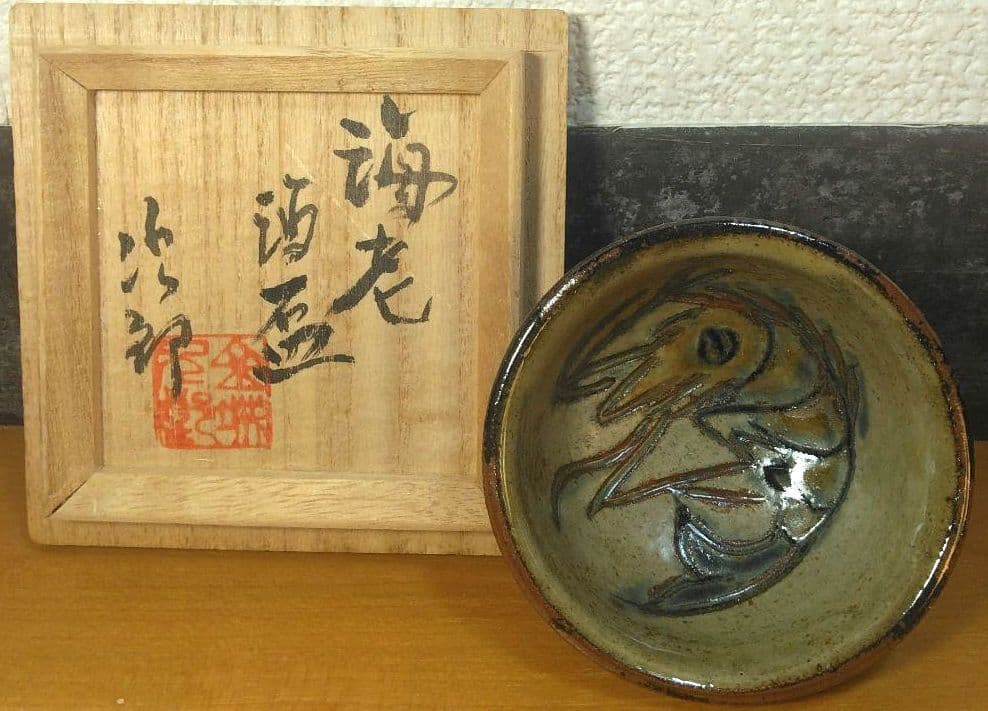 海老
酒盃
次郎